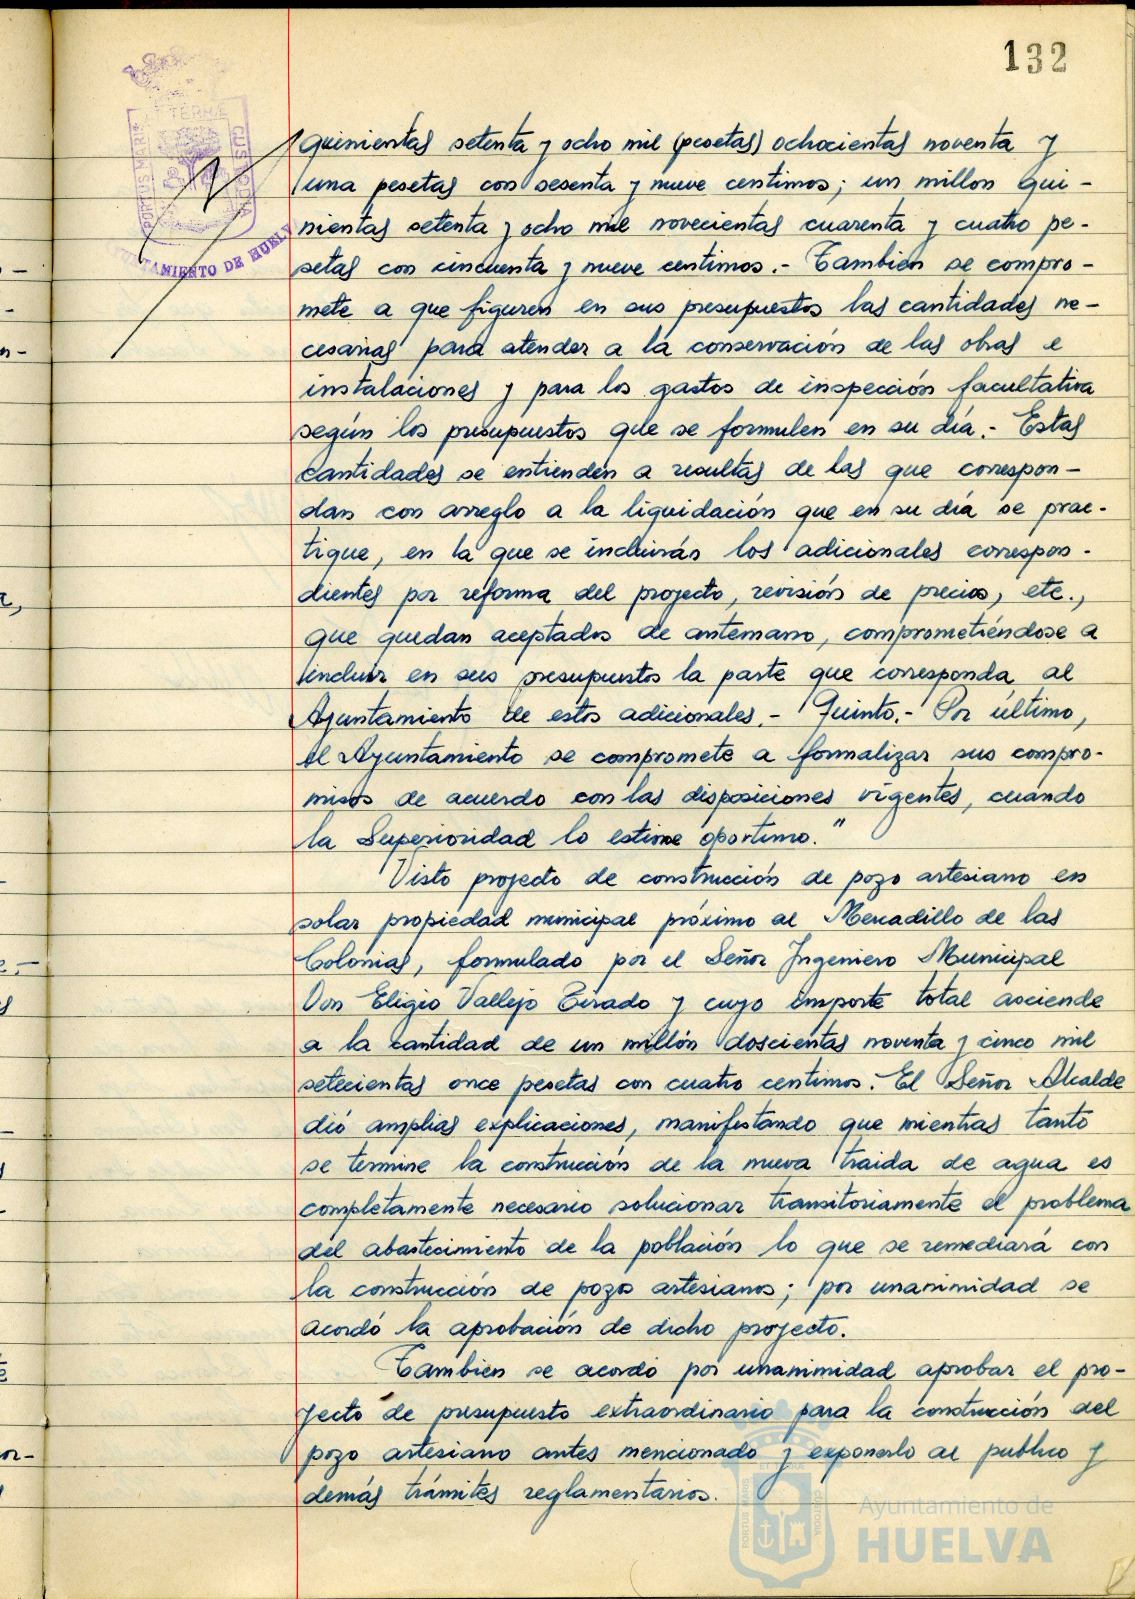 132
TERRÆ
PORTUS MARIS
CUSTODIA
AYUNTAMIENTO DE HUELVA
quinientas setenta y ocho mil (pesetas) ochocientas noventa y
una pesetas con sesenta y nueve centimos; un millon qui-
nientas setenta y ocho mil novecientas cuarenta y cuatro pe-
setas con cincuenta y nueve centimos.- Tambien se compro-
mete a que figuren en sus presupuestos las cantidades ne-
cesarias para atender a la conservación de las obras e
instalaciones y para los gastos de inspección facultativa
según los presupuestos que se formulen en su día.- Estas
cantidades se entienden a resultas de las que correspon-
dan con arreglo a la liquidación que en su día se prac-
tique, en la que se incluirán los adicionales correspon-
dientes por reforma del proyecto, revisión de precios, etc.,
que quedan aceptados de antemano, comprometiéndose a
incluir en sus presupuestos la parte que corresponda al
Ayuntamiento de estos adicionales.- Quinto.- Por último,
el Ayuntamiento se compromete a formalizar sus compro-
misos de acuerdo con las disposiciones vigentes, cuando
la Superioridad lo estime oportuno."
Visto proyecto de construcción de pozo artesiano en
solar propiedad municipal próximo al Mercadillo de las
Colonias, formulado por el Señor Ingeniero Municipal
Don Eligio Vallejo Tirado y cuyo importe total asciende
a la cantidad de un millón doscientas noventa y cinco mil
setecientas once pesetas con cuatro centimos. El Señor Alcalde
dió amplias explicaciones, manifestando que mientras tanto
se termine la construcción de la nueva traida de agua es
completamente necesario solucionar transitoriamente el problema
del abastecimiento de la población lo que se remediará con
la construcción de pozos artesianos; por unanimidad se
acordó la aprobación de dicho proyecto.
Tambien se acordó por unanimidad aprobar el pro-
yecto de presupuesto extraordinario para la construcción del
pozo artesiano antes mencionado y exponerlo al publico y
demás trámites reglamentarios.
PORTUS MARIS
CUSTODIA
Ayuntamiento de
HUELVA